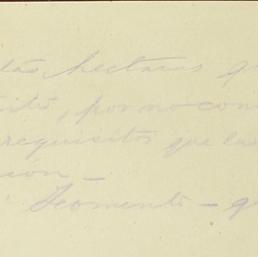 las hectareas q
, por no con
requisitos que la
ción -
Fomento - q